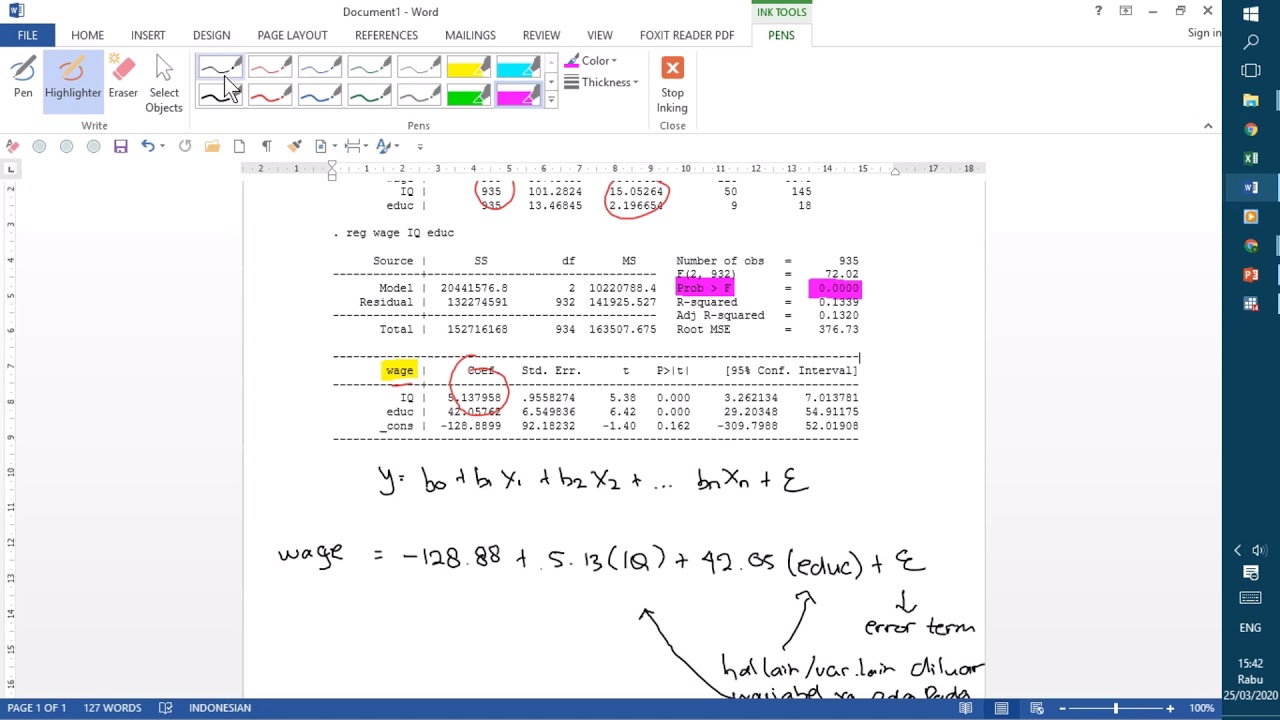 Document1 - Word
INK TOOLS
Sign in
FILE HOME INSERT DESIGN PAGE LAYOUT REFERENCES MAILINGS REVIEW VIEW FOXIT READER PDF PENS
Pen Highlighter Eraser Select Objects
Color
Thickness
Stop Inking
Write Pens Close
2 1 1 2 3 4 5 6 7 8 9 10 11 12 13 14 15 17 18
IQ | 935 101.2824 15.05264 50 145
educ | 935 13.46845 2.196654 9 18
. reg wage IQ educ
Source | SS df MS Number of obs = 935
-------------+---------------------------------- F(2, 932) = 72.02
Model | 20441576.8 2 10220788.4 Prob > F = 0.0000
Residual | 132274591 932 141925.527 R-squared = 0.1339
-------------+---------------------------------- Adj R-squared = 0.1320
Total | 152716168 934 163507.675 Root MSE = 376.73
wage | Coef. Std. Err. t P>|t| [95% Conf. Interval]
IQ | 5.137958 .9558274 5.38 0.000 3.262134 7.013781
educ | 42.05762 6.549836 6.42 0.000 29.20348 54.91175
_cons | -128.8899 92.18232 -1.40 0.162 -309.7988 52.01908
y = b0 + b1 X1 + b2 X2 + ... bn Xn + Ɛ
wage = -128.88 + 5.13 (IQ) + 42.05 (educ) + Ɛ
error term
hal lain/var.lain diluar
variabel yg ada pada
PAGE 1 OF 1 127 WORDS INDONESIAN 100%
ENG
15:42
Rabu
25/03/2020